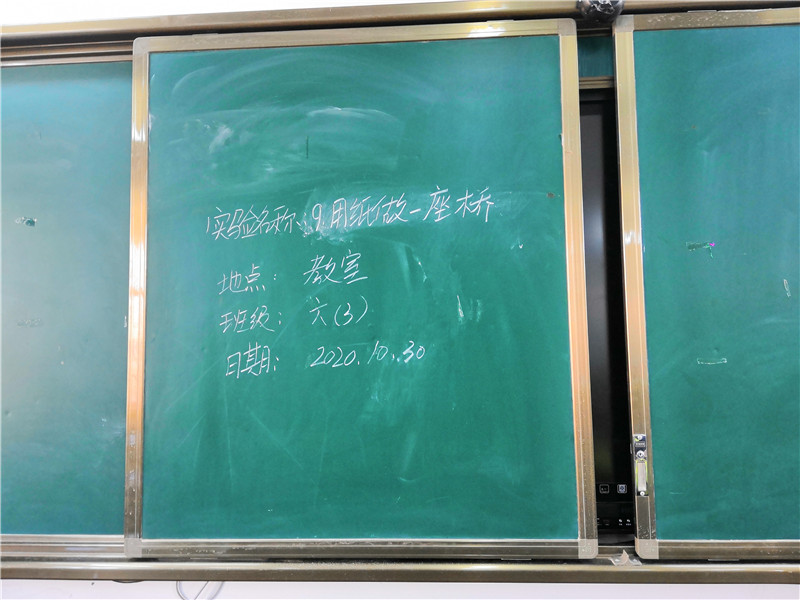 实验名称:9.用纸做一座桥
地点: 教室
班级: 六(3)
日期: 2020.10.30